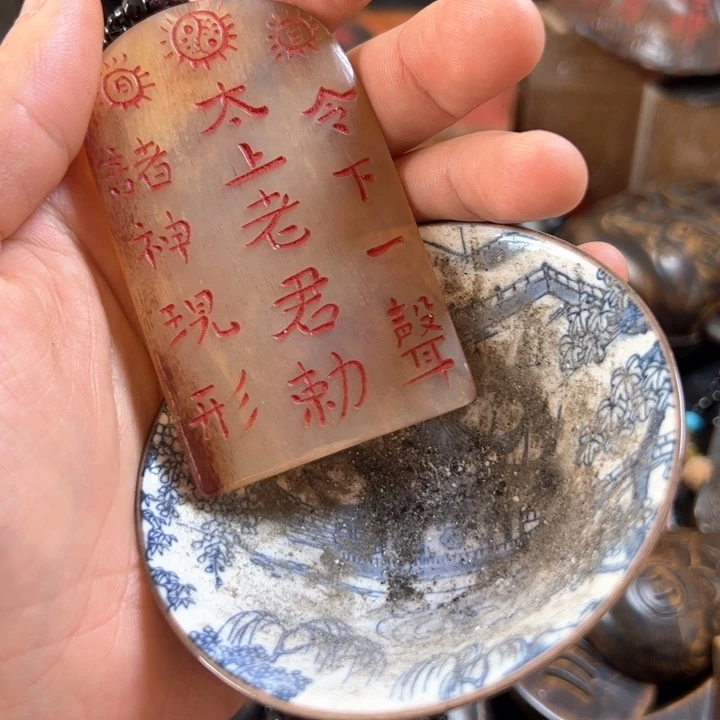 令下一聲
太上老君勅
日
諸神現形